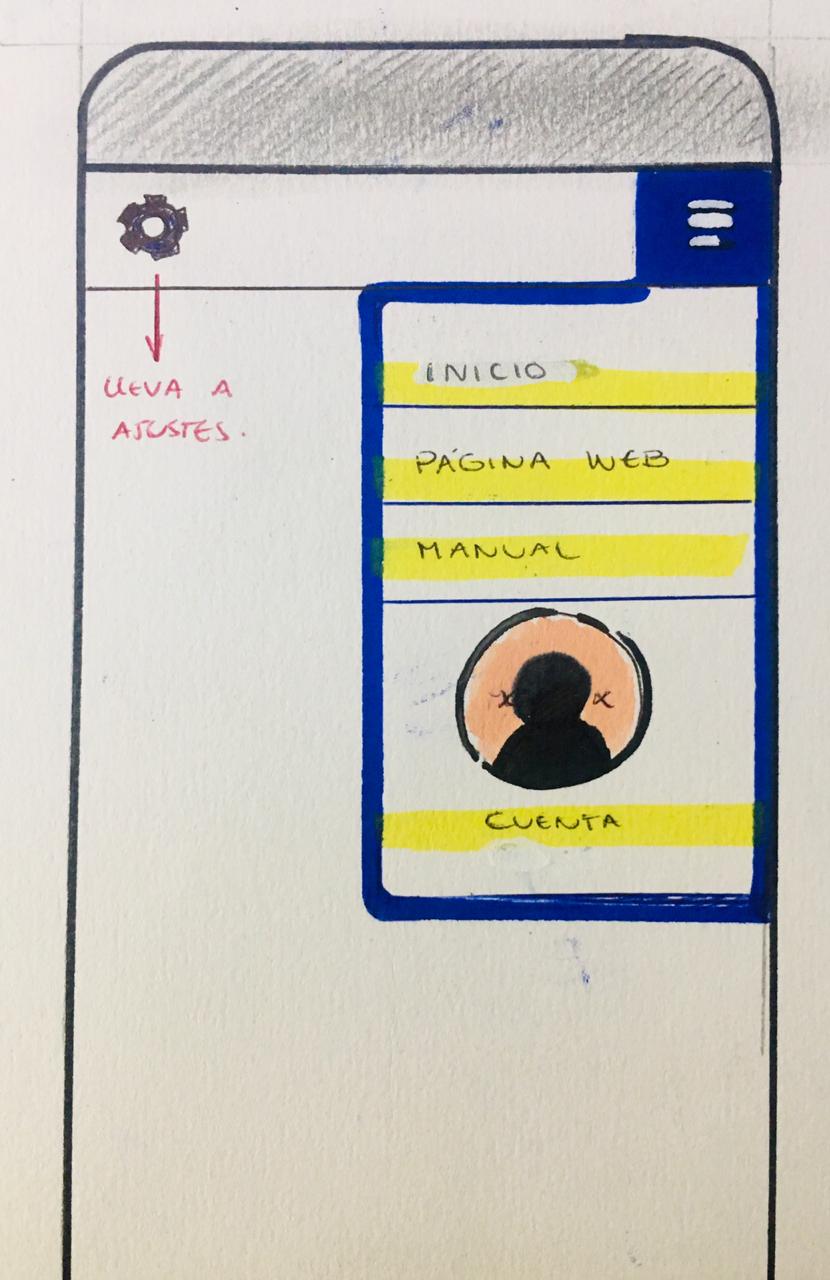 LLEVA A
AJUSTES.
INICIO
PÁGINA WEB
MANUAL
x x
CUENTA